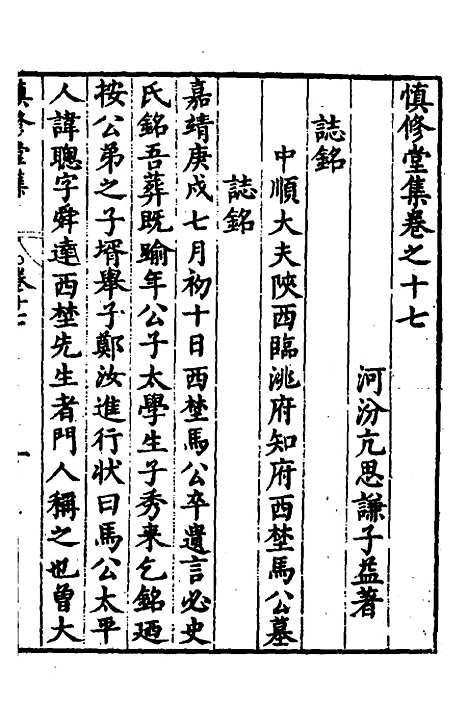 慎修堂集卷之十七
河汾亢思謙子益著
誌銘
中順大夫陝西臨洮府知府西埜馬公墓
誌銘
嘉靖庚戌七月初十日西埜馬公卒遺言必史
氏銘吾葬既踰年公子太學生子秀来乞銘廼
按公弟之子壻舉子鄭汝進行状曰馬公太平
人諱聰字舜達西埜先生者門人稱之也曾大
慎修堂集 卷十七 一